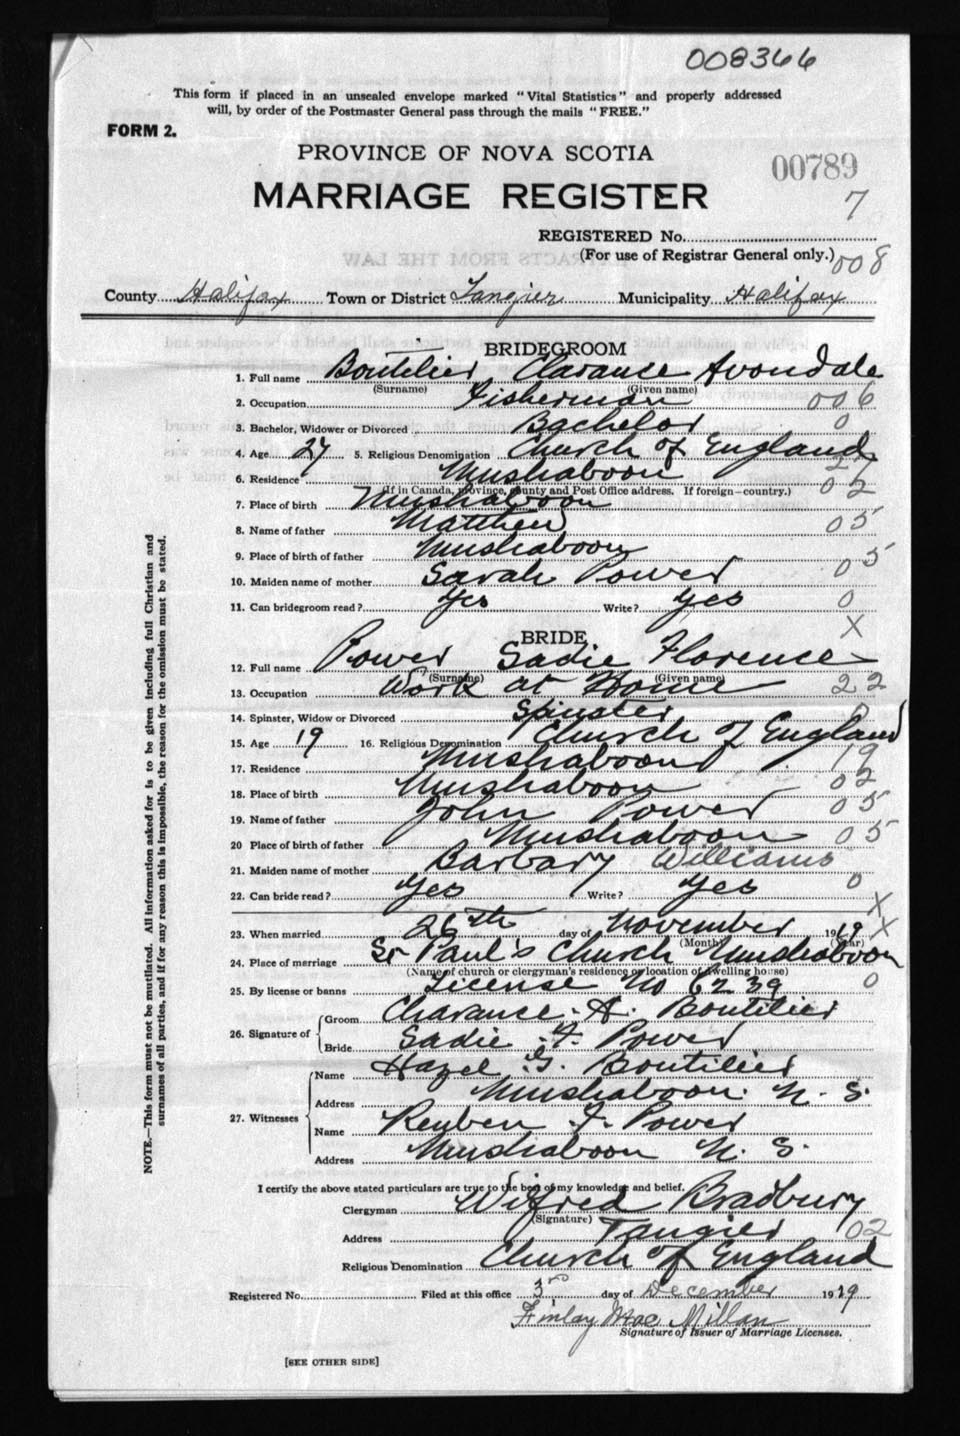 008366
This form if placed in an unsealed envelope marked "Vital Statistics" and properly addressed
will, by order of the Postmaster General pass through the mails "FREE."
FORM 2.
PROVINCE OF NOVA SCOTIA
00789
MARRIAGE REGISTER
7
REGISTERED No.
(For use of Registrar General only.)
008
County Halifax Town or District Tangier Municipality Halifax
BRIDEGROOM
1. Full name Boutilier Clarance Avondale
(Surname) (Given name)
2. Occupation Fisherman 006
3. Bachelor, Widower or Divorced Bachelor 0
4. Age 27 5. Religious Denomination Church of England
27
6. Residence Mushaboon 02
(If in Canada, province, county and Post Office address. If foreign—country.)
7. Place of birth Mushaboon
8. Name of father Matthew 05
9. Place of birth of father Mushaboon 05
10. Maiden name of mother Sarah Power
11. Can bridegroom read? Yes Write? Yes 0
X
BRIDE
12. Full name Power Sadie Florence
(Surname) (Given name)
13. Occupation Work at Home 22
14. Spinster, Widow or Divorced Spinster 0
15. Age 19 16. Religious Denomination Church of England
17. Residence Mushaboon 19
18. Place of birth Mushaboon 02
19. Name of father John Power 05
20 Place of birth of father Mushaboon 05
21. Maiden name of mother Barbary Williams
22. Can bride read? Yes Write? Yes 0
X
23. When married 26th day of November 1919 X
(Month) (Year)
24. Place of marriage St Paul's Church Mushaboon
(Name of church or clergyman's residence or location of dwelling house)
25. By license or banns License No 6239 0
26. Signature of Groom Clarance. A. Boutilier
Bride Sadie .F. Power
27. Witnesses Name Hazel .G. Boutilier
Address Mushaboon. N. S.
Name Reuben J. Power
Address Mushaboon N. S.
I certify the above stated particulars are true to the best of my knowledge and belief.
Clergyman Wilfred Bradbury
(Signature)
Address Tangier 02
Religious Denomination Church of England
Registered No. Filed at this office 3rd day of December 1919
Finlay Mac Millan
Signature of Issuer of Marriage Licenses.
[SEE OTHER SIDE]
NOTE.—This form must not be mutilated. All information asked for is to be given including full Christian and
surnames of all parties, and if for any reason this is impossible, the reason for the omission must be stated.